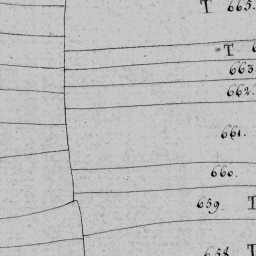 T 665.
T 6
663
662.
661.
660.
659. T
658 T